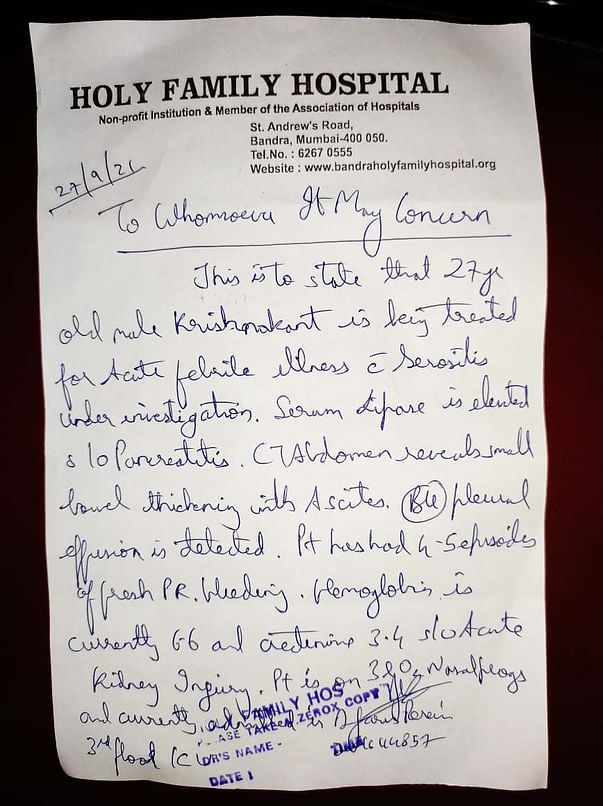 HOLY FAMILY HOSPITAL
Non-profit Institution & Member of the Association of Hospitals
St. Andrew's Road,
Bandra, Mumbai-400 050.
Tel.No. : 6267 0555
Website : www.bandraholyfamilyhospital.org
27/9/21
To Whomsoever It May Concern
This is to state that 27 yr
old male Krishnakant is being treated
for Acute febrile illness c̄ Serositis
under investigation. Serum Lipase is elevated
s/o Pancreatitis. CT Abdomen reveals small
bowel thickening with Ascites. B/L pleural
effusion is detected. Pt has had 4-5 episodes
of fresh PR bleeding. Hemoglobin is
currently 6.6 and creatinine 3.4 s/o Acute
Kidney Injury. Pt is on 3L O2 Nasal prongs
and currently admitted in
3rd floor IC
FAMILY HOS
PLEASE TAKE A ZEROX COPY
DR'S NAME -
DATE :